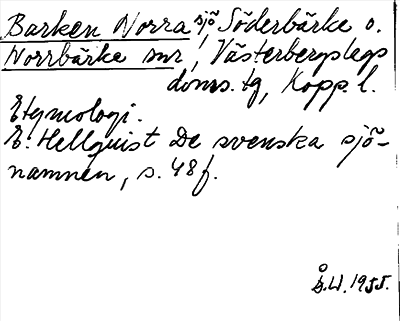 Barken Norra sjö Söderbärke o.
Norrbärke snr, Västerbergslags
doms. tg, Kopp. l.
Etymologi.
E. Hellquist De svenska sjö-
namnen, s. 48 f.
Å.W. 1955.